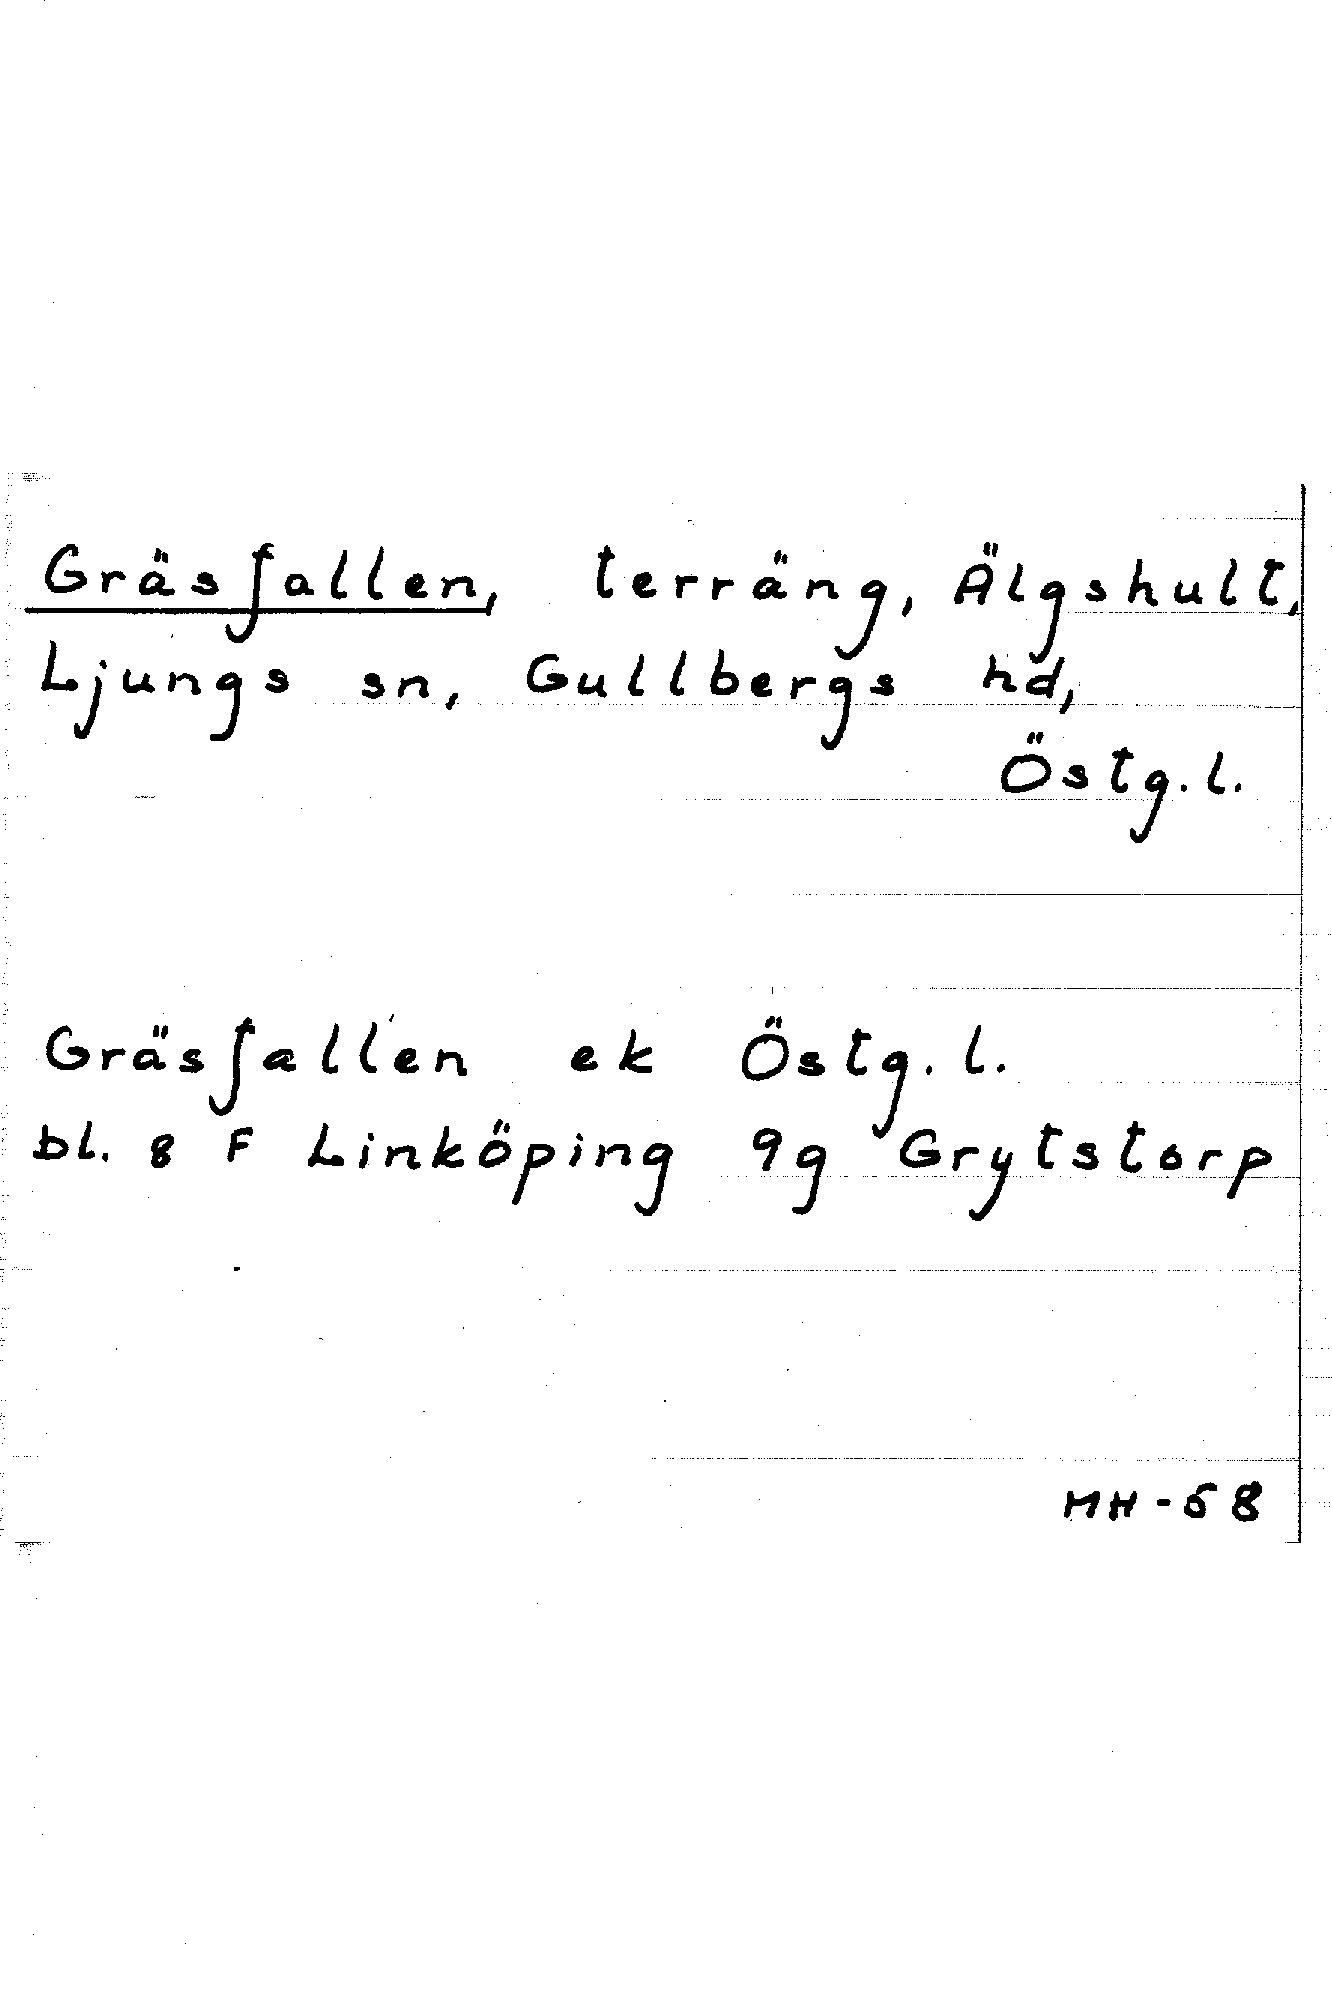 Gräsfallen, terräng, Älgshult,
Ljungs sn, Gullbergs hd,
Östg.l.
Gräsfallen ek Östg.l.
bl. 8 F Linköping 9g Grytstorp
MH-58